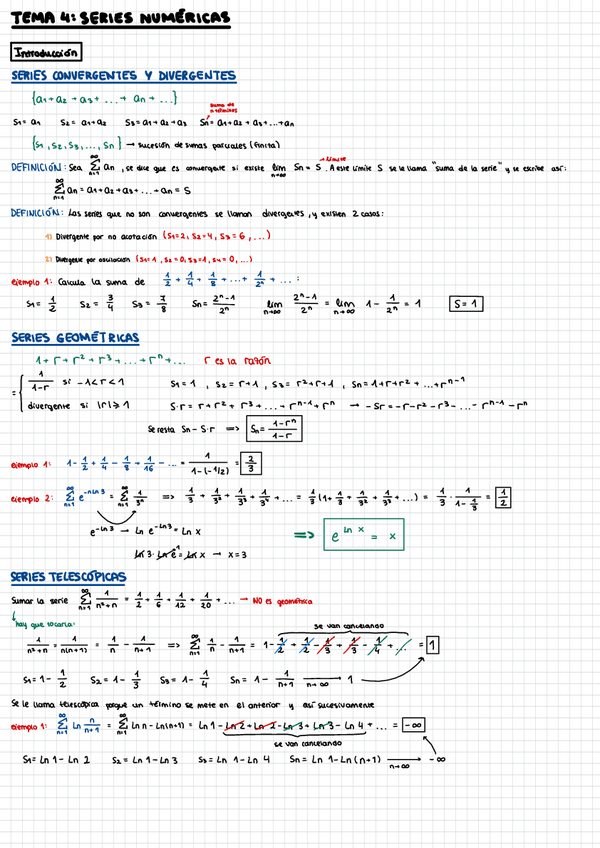 TEMA 4: SERIES NUMÉRICAS
Introducción
SERIES CONVERGENTES Y DIVERGENTES
{a1 + a2 + a3 + ... + an + ...}
suma de n términos
S1 = a1 S2 = a1+a2 S3 = a1 + a2 + a3 Sn = a1 + a2 + a3 + ... + an
{S1, S2, S3, ..., Sn} → sucesión de sumas parciales (finita)
DEFINICIÓN: Sea ∑_{n=1}^{∞} an, se dice que es convergente si existe lim_{n→∞} Sn = S → límite. A este límite S se le llama "suma de la serie" y se escribe así:
∑_{n=1}^{∞} an = a1 + a2 + a3 + ... + an = S
DEFINICIÓN: Las series que no son convergentes se llaman divergentes, y existen 2 casos:
1) Divergente por no acotación (S1=2, S2=4, S3=6, ...)
2) Divergente por oscilación (S1=1, S2=0, S3=1, S4=0, ...)
ejemplo 1: Calcula la suma de 1/2 + 1/4 + 1/8 + ... + 1/2^n + ... :
S1 = 1/2 S2 = 3/4 S3 = 7/8 Sn = (2^n - 1)/2^n lim_{n→∞} (2^n - 1)/2^n = lim_{n→∞} 1 - 1/2^n = 1 S = 1
SERIES GEOMÉTRICAS
1 + r + r^2 + r^3 + ... + r^n + ... r es la razón
= { 1/(1-r) si -1<r<1 S1 = 1, S2 = r+1, S3 = r^2+r+1, Sn = 1+r+r^2+...+r^{n-1}
divergente si |r| ⩾ 1 S·r = r + r^2 + r^3 + ... + r^{n-1} + r^n → -Sr = -r - r^2 - r^3 - ... - r^{n-1} - r^n
Se resta Sn - S·r => Sn = (1-r^n)/(1-r)
ejemplo 1: 1 - 1/2 + 1/4 - 1/8 + 1/16 - ... = 1/(1-(-1/2)) = 2/3
ejemplo 2: ∑_{n=1}^{∞} e^{-n ln 3} = ∑_{n=1}^{∞} 1/3^n => 1/3 + 1/3^2 + 1/3^3 + 1/3^4 + ... = 1/3 (1 + 1/3 + 1/3^2 + 1/3^3 + ...) = 1/3 · 1/(1 - 1/3) = 1/2
e^{-ln 3} → ln e^{-ln 3} = ln x
ln 3 · ln e^{1} = ln x → x = 3
=> e^{ln x} = x
SERIES TELESCÓPICAS
Sumar la serie ∑_{n=1}^{∞} 1/(n^2+n) = 1/2 + 1/6 + 1/12 + 1/20 + ... → NO es geométrica
hay que tocarla:
se van cancelando
1/(n^2+n) = 1/(n(n+1)) = 1/n - 1/(n+1) => ∑_{n=1}^{∞} 1/n - 1/(n+1) = 1 - 1/2 + 1/2 - 1/3 + 1/3 - 1/4 + ... = 1
S1 = 1 - 1/2 S2 = 1 - 1/3 S3 = 1 - 1/4 Sn = 1 - 1/(n+1) n→∞ 1
Se le llama telescópica porque un término se mete en el anterior y así sucesivamente
ejemplo 1: ∑_{n=1}^{∞} ln n/(n+1) = ∑_{n=1}^{∞} ln n - ln(n+1) = ln 1 - ln 2 + ln 2 - ln 3 + ln 3 - ln 4 + ... = -∞
se van cancelando
S1 = ln 1 - ln 2 S2 = ln 1 - ln 3 S3 = ln 1 - ln 4 Sn = ln 1 - ln(n+1) n→∞ -∞